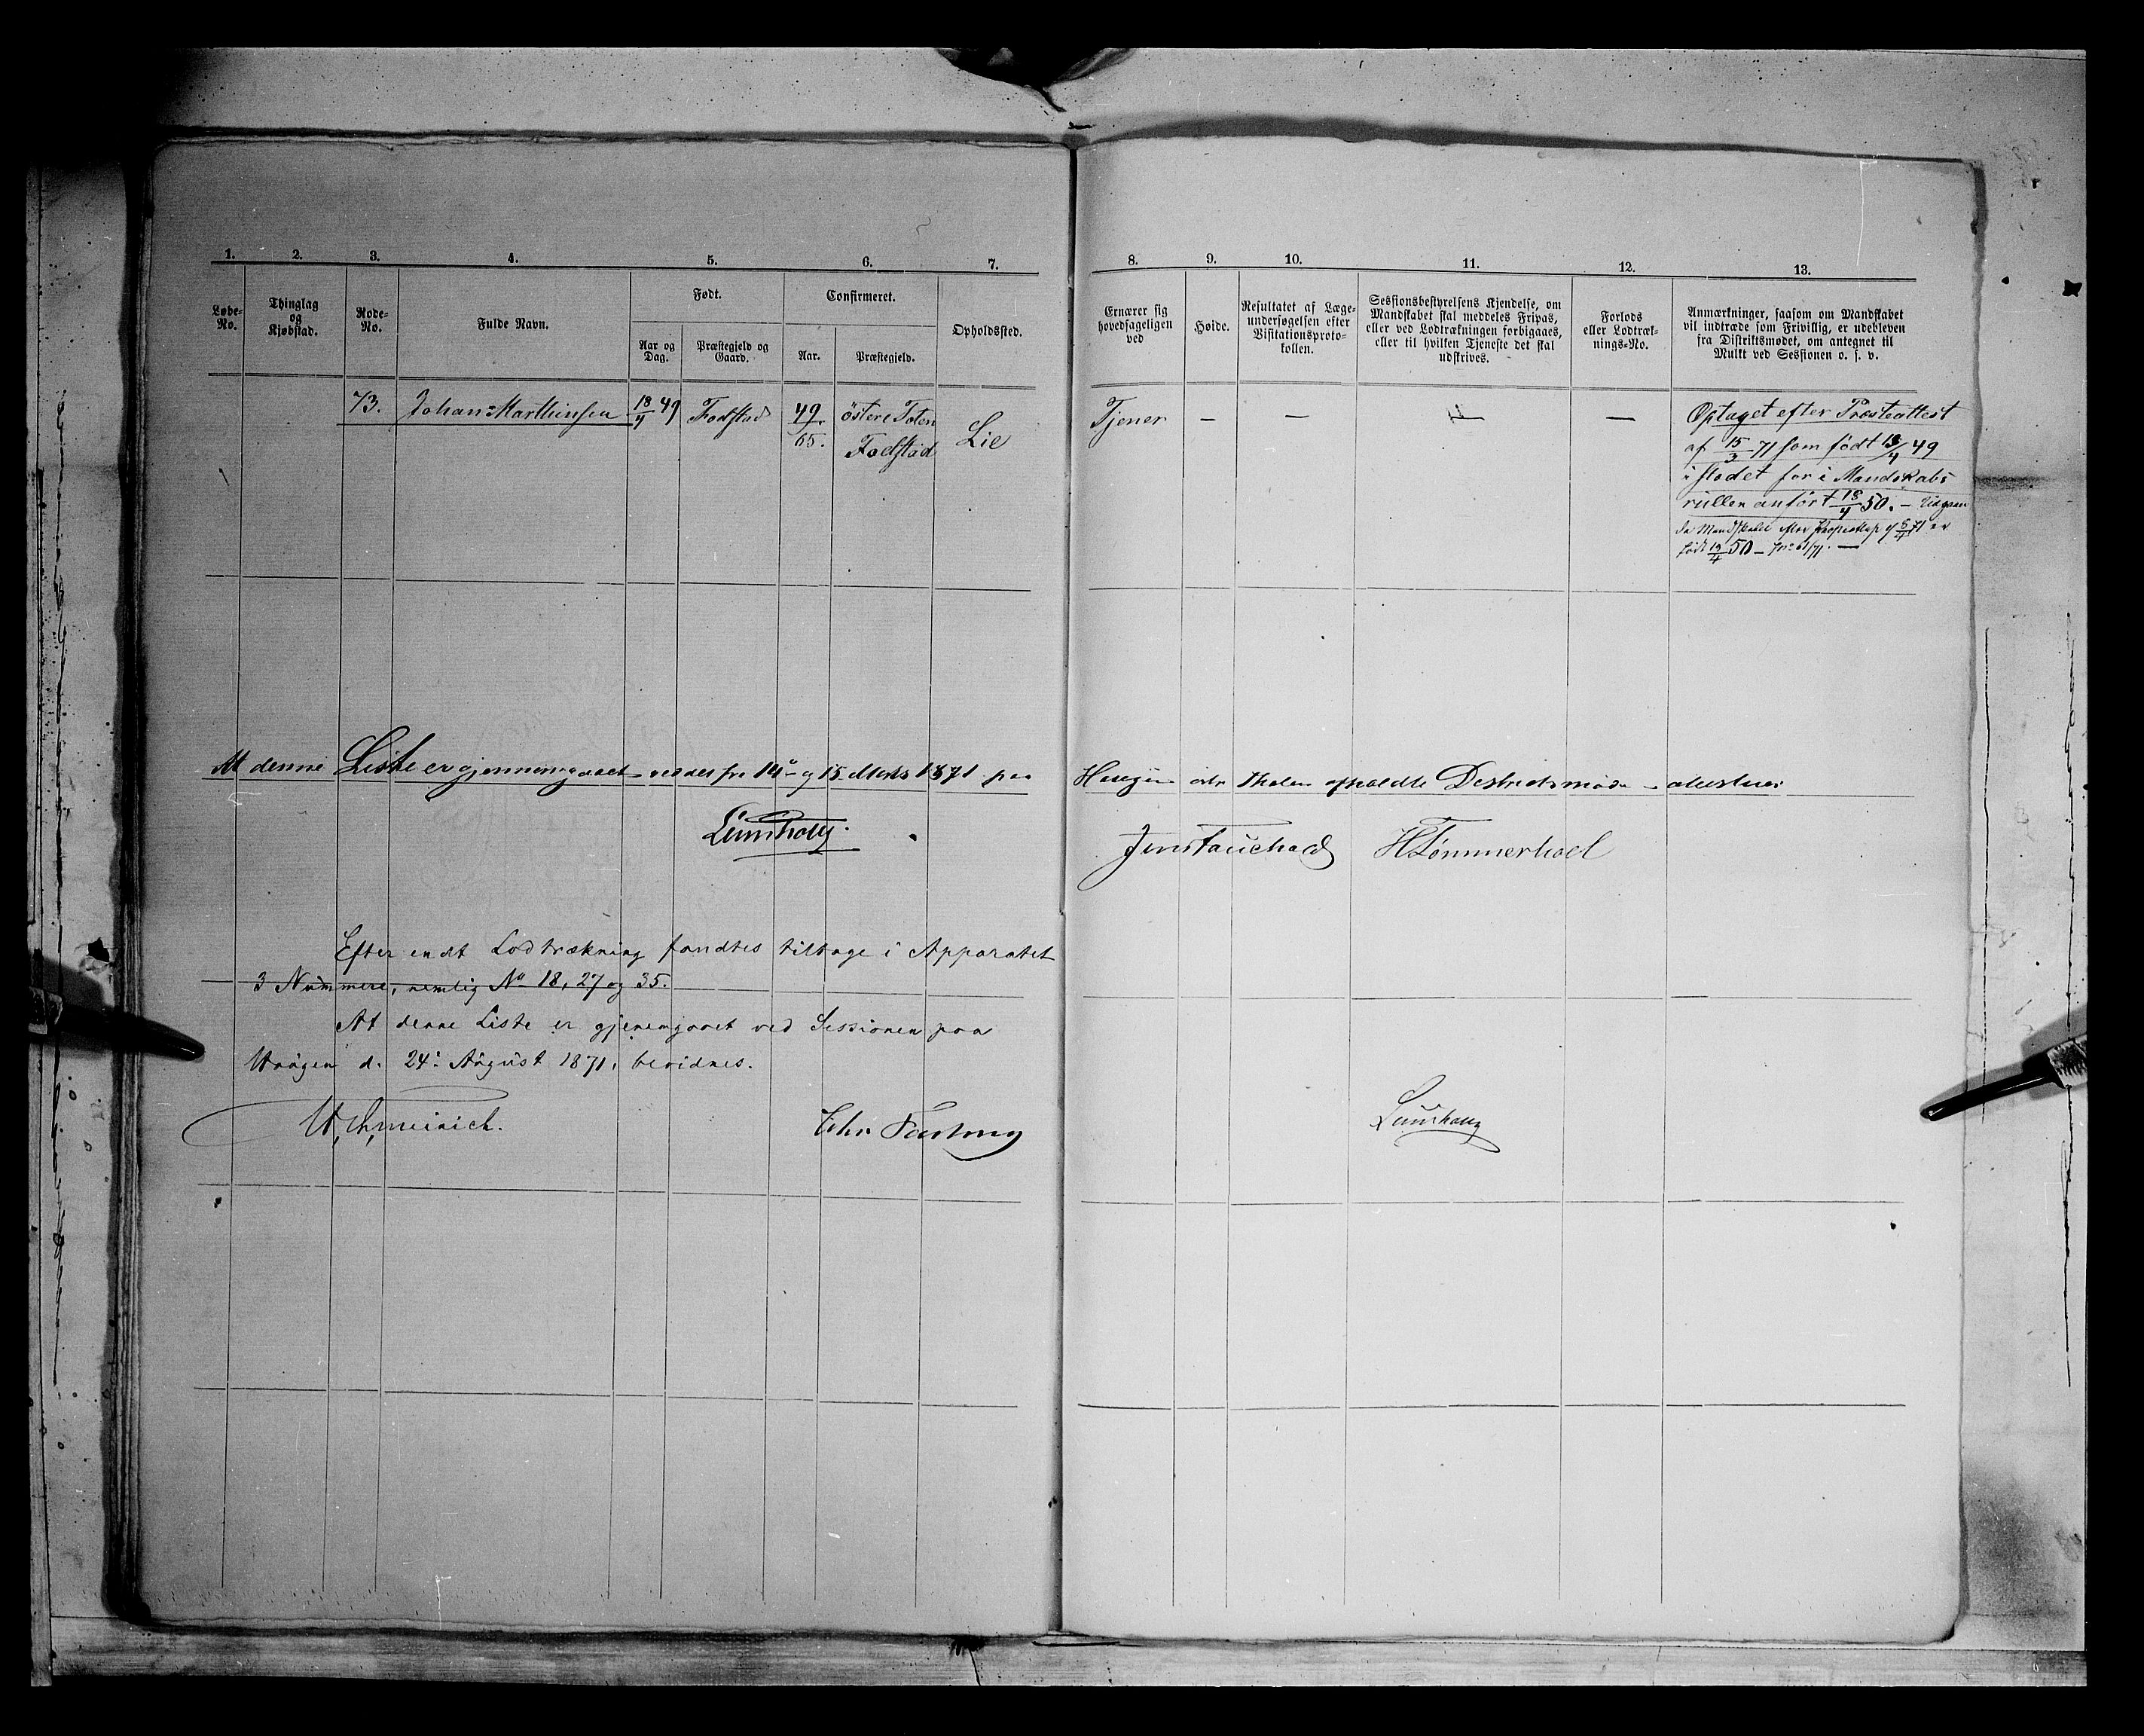 1. 2. 3. 4. 5. 6. 7. 8. 9. 10. 11. 12. 13.
Løbe-
No.
Thinglag
og
Kjøbstad.
Rode-
No.
Fulde Navn.
Født.
Aar og
Dag.
Præstegjeld og
Gaard.
Confirmeret.
Aar.
Præstegjeld.
Opholdssted.
Ernærer sig
hovedsageligen
ved
Høide.
Resultatet af Læge-
undersøgelsen efter
Visitationsproto-
kollen.
Sessionsbestyrelsens Kjendelse, om
Mandskabet skal meddeles Fripas,
eller ved Lodtrækningen forbigaaes,
eller til hvilken Tjeneste det skal
udskrives.
Forlods
eller Lodtræk-
nings-No.
Anmærkninger, saasom om Mandskabet
vil indtræde som Frivillig, er udebleven
fra Distriktsmødet, om antegnet til
Mulkt ved Sessionen o. s. v.
73. Johan Marthinsen 18/4 49 Fodstad
östere Toten
65. Fodstad
Lie
Tjener — — —
Optaget efter Præsteattest
af 15/3 71 som født 18/4 49
istedet for i Mandskabs
rullen anført 18/4 50. — Udgaar
da Mandskabet efter af er
født 50 —
At denne Liste er gjennemgaaet ved det fra 14de og 15 Marts 1871 paa
Haugen afholdte Destrictsmøde attesteres
Lumholtz.
H Tømmerhoel
Efter endt Lodtrækning fandtes tilbage i Apparatet
3 Nummere, nemlig No 18, 27 og 35.
At denne Liste er gjenemgaaet ved Sessionen paa
Haugen d. 24. August 1871, bevidnes.
Chr
Lumholtz